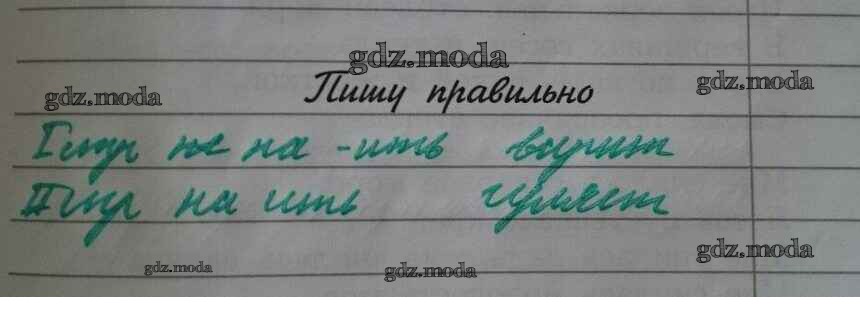 gdz.moda
gdz.moda Пишу правильно gdz.moda
I спр не на -ить варит
II спр на ить гуляет
gdz.moda gdz.moda gdz.moda